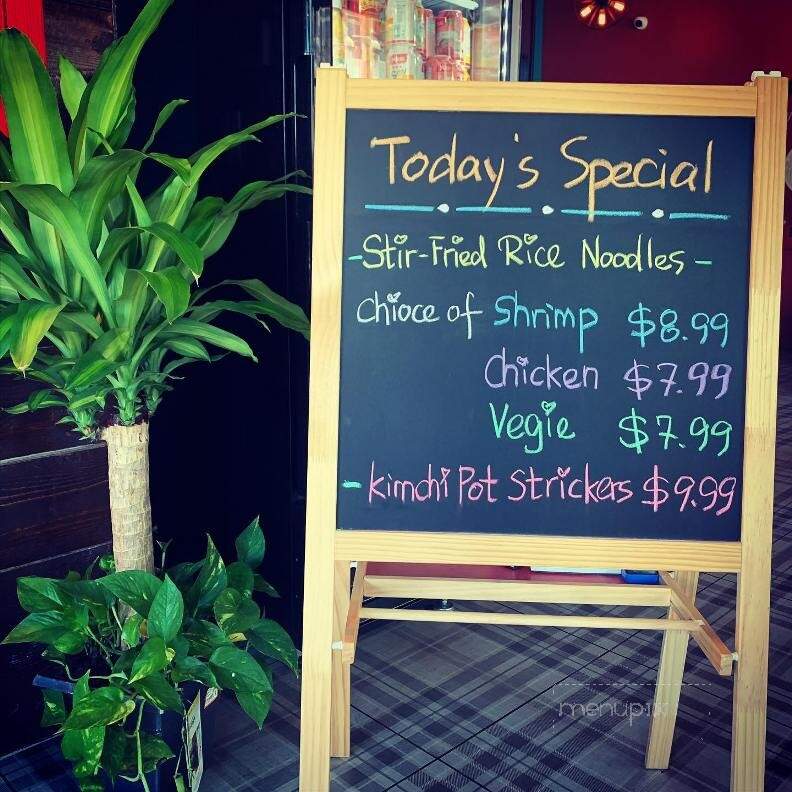 Today's Special
- Stir-Fried Rice Noodles -
Chioce of Shrimp $8.99
Chicken $7.99
Vegie $7.99
- kimchi Pot Strickers $9.99
menupix